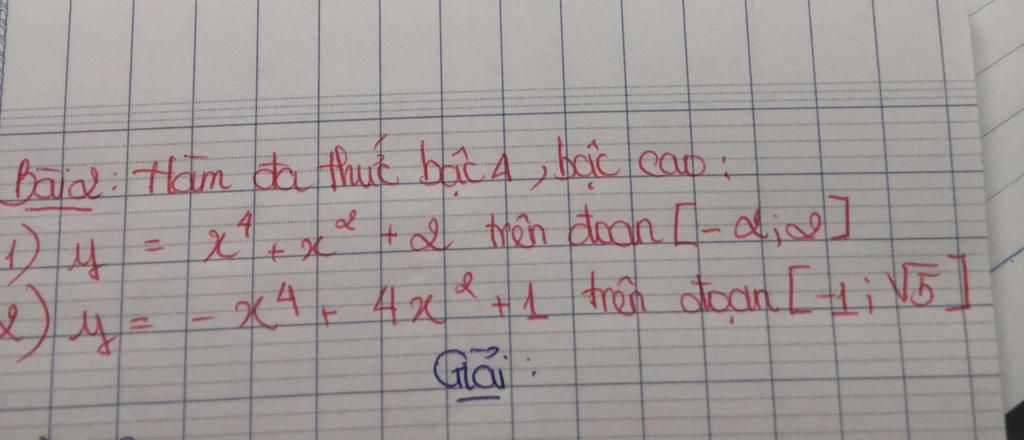 Bài 2: Hàm đa thức bậc 4, bậc cao:
1) y = x⁴ + x² + 2 trên đoạn [-2; 2]
2) y = -x⁴ + 4x² + 1 trên đoạn [-1; √5]
Giải: